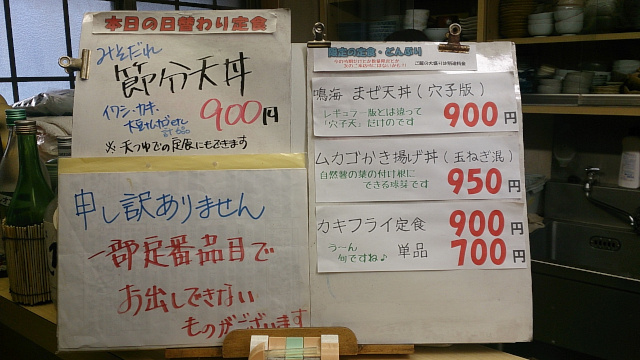 本日の日替わり定食
みそだれ
節分天丼
イワシ・サキ、
900円
※天つゆでの定食にもできます
申し訳ありません
一部定番品目で
お出しできない
ものがございます
限定の定食・どんぶり
ご飯の大盛りは別途料金
鳴海 まぜ天丼(穴子版)
レギュラー版とは違って
「穴子天」だけのです
900円
ムカゴかき揚げ丼(玉ねぎ混)
自然薯の葉の付け根に
できる球芽です
950円
カキフライ定食 900円
うーん
何ですね♪
単品 700円